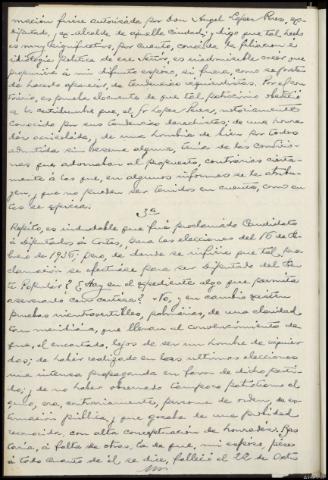 mación fuese autorizada por don Angel Lopez Perez, ex
diputado, ex alcalde de aquella Ciudad; y digo que tal hecho
es muy significativo, por cuanto, conocida la filiacion e
ideologia politica de ese señor, es inadmisible creer que
propusiera a mi difunto esposo, si fuera, como se trata
de hacerlo aparecer, de tendencias izquierdistas.
es prueba elocuente de que tal patricio
la certidumbre que, el Sr Lopez Perez, notoriamente
conocido por sus tendencias derechistas; de una honra
dez acrisolada, y de una hombria de bien por todos
admitida sin reserva alguna, tenia de las condicio
nes que adornaban al propuesto, contrarias cierta
mente a las que, en algunos informes se le atribu
yen, y que no pueden ser tenidos en cuenta, como an
tes se expresa.
3ª
Repito, es indudable que fué proclamado Candidato
a Diputados a Cortes, para las elecciones del 16 de Fe
brero de 1936; pero, de donde se infiere que tal pro
clamación se efectuase para ser Diputado del Fren
te Popular? ¿Hay en el expediente algo que permita
aseverarlo con certeza? No, y en cambio existen
pruebas incontrovertibles, palmarias, de una claridad
tan meridiana, que llevan al convencimiento de
que, el encartado, lejos de ser un hombre de izquier
das; de haber realizado en las ultimas elecciones
una intensa propaganda en favor de dicho parti
do; y de no haber observado tampoco patriotismo al
guno, era, contrariamente, persona de orden, de es
timación pública, y que gozaba de una probidad
reconocida, con alta conceptuación de honradez. Bas
taria, a falta de otras, la de que, mi esposo, pese
a todo cuanto de él se dice, falleció el 22 de Octu